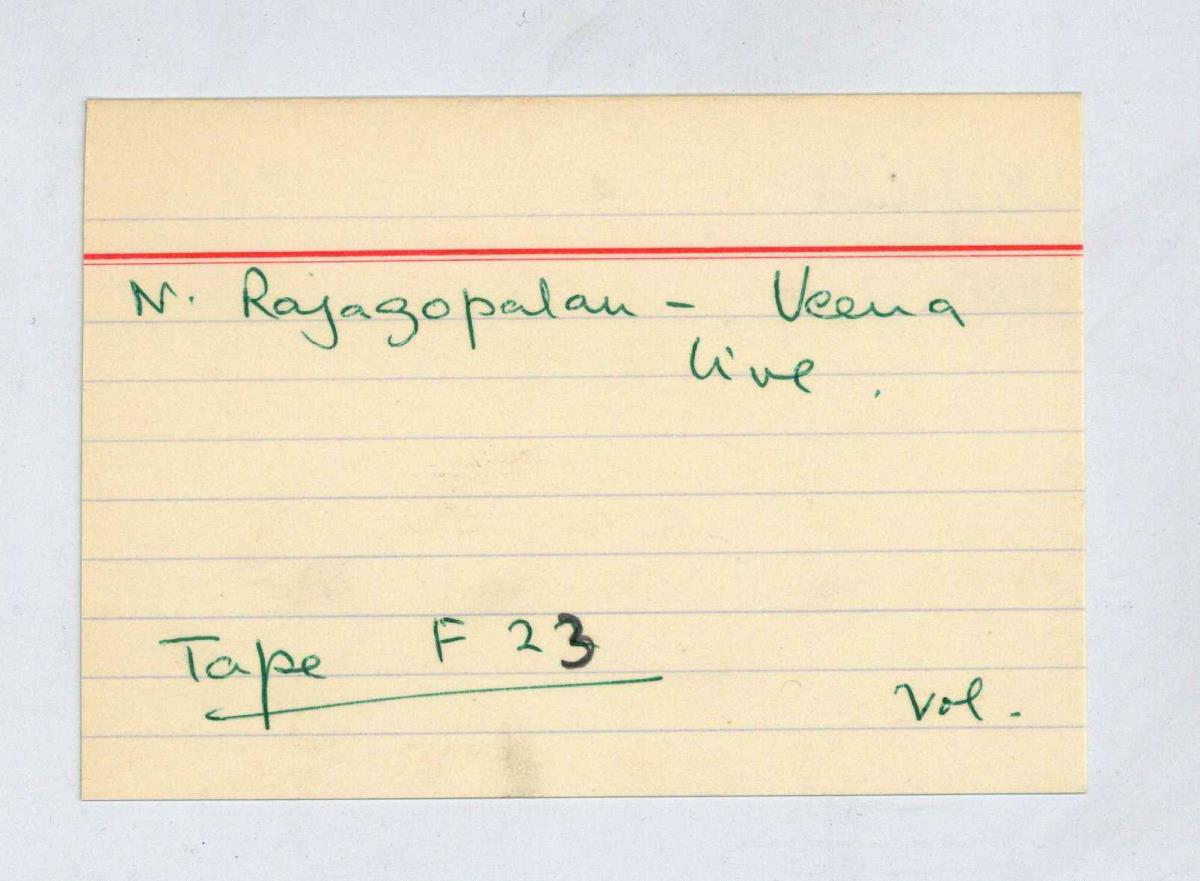 N. Rajagopalan - Veena
live.
Tape F 23
Vol.